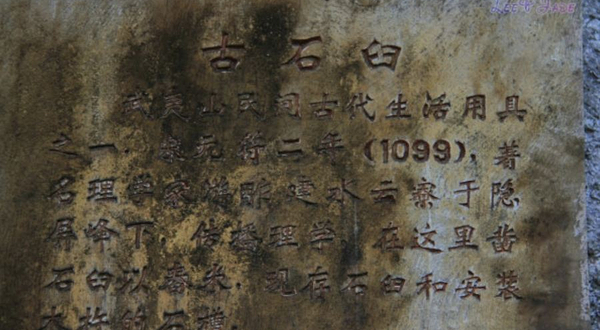 古石臼
武夷山民间古代生活用具
之一。宋元符二年(1099),著
名理学家游酢建水云寮于隐
屏峰下,传播理学,在这里凿
石臼以舂米,现存石臼和安装
木杵的石槽。